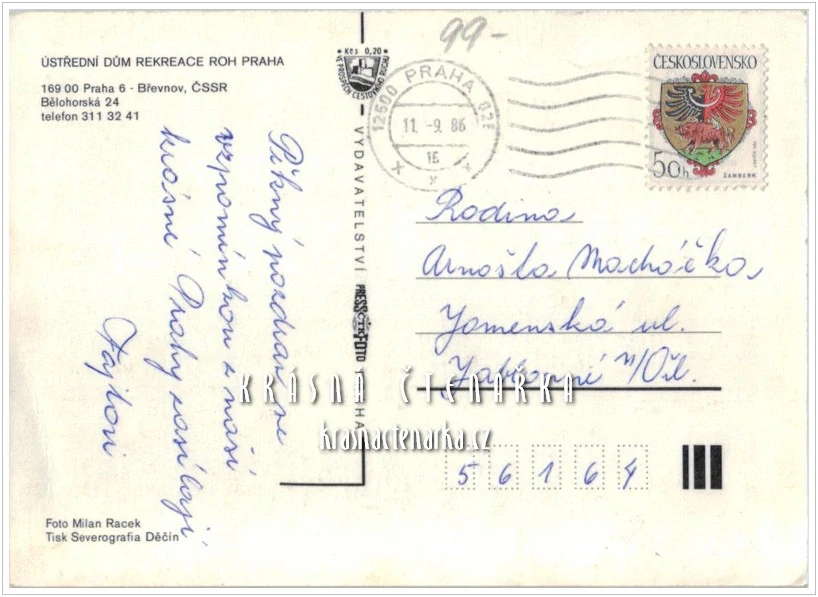 99-
ÚSTŘEDNÍ DŮM REKREACE ROH PRAHA
169 00 Praha 6 - Břevnov, ČSSR
Bělohorská 24
telefon 311 32 41
Kčs 0,20
VE PROSPĚCH CESTOVNÍHO RUCHU
12500 PRAHA 025
11.-9.86
16
ČESKOSLOVENSKO
50h
ŽAMBERK
Pěkný pozdrav se
vzpomínkou z naší
krásné Prahy zasílají
Fajtovi
VYDAVATELSTVÍ PRESSFOTO PRAHA
ČTK
Rodina
Arnošta Macháčka
Jamenská ul.
Jablonné n/Orl.
56164
KRÁSNÁ ČTENÁŘKA
krasnactenarka.cz
Foto Milan Racek
Tisk Severografia Děčín